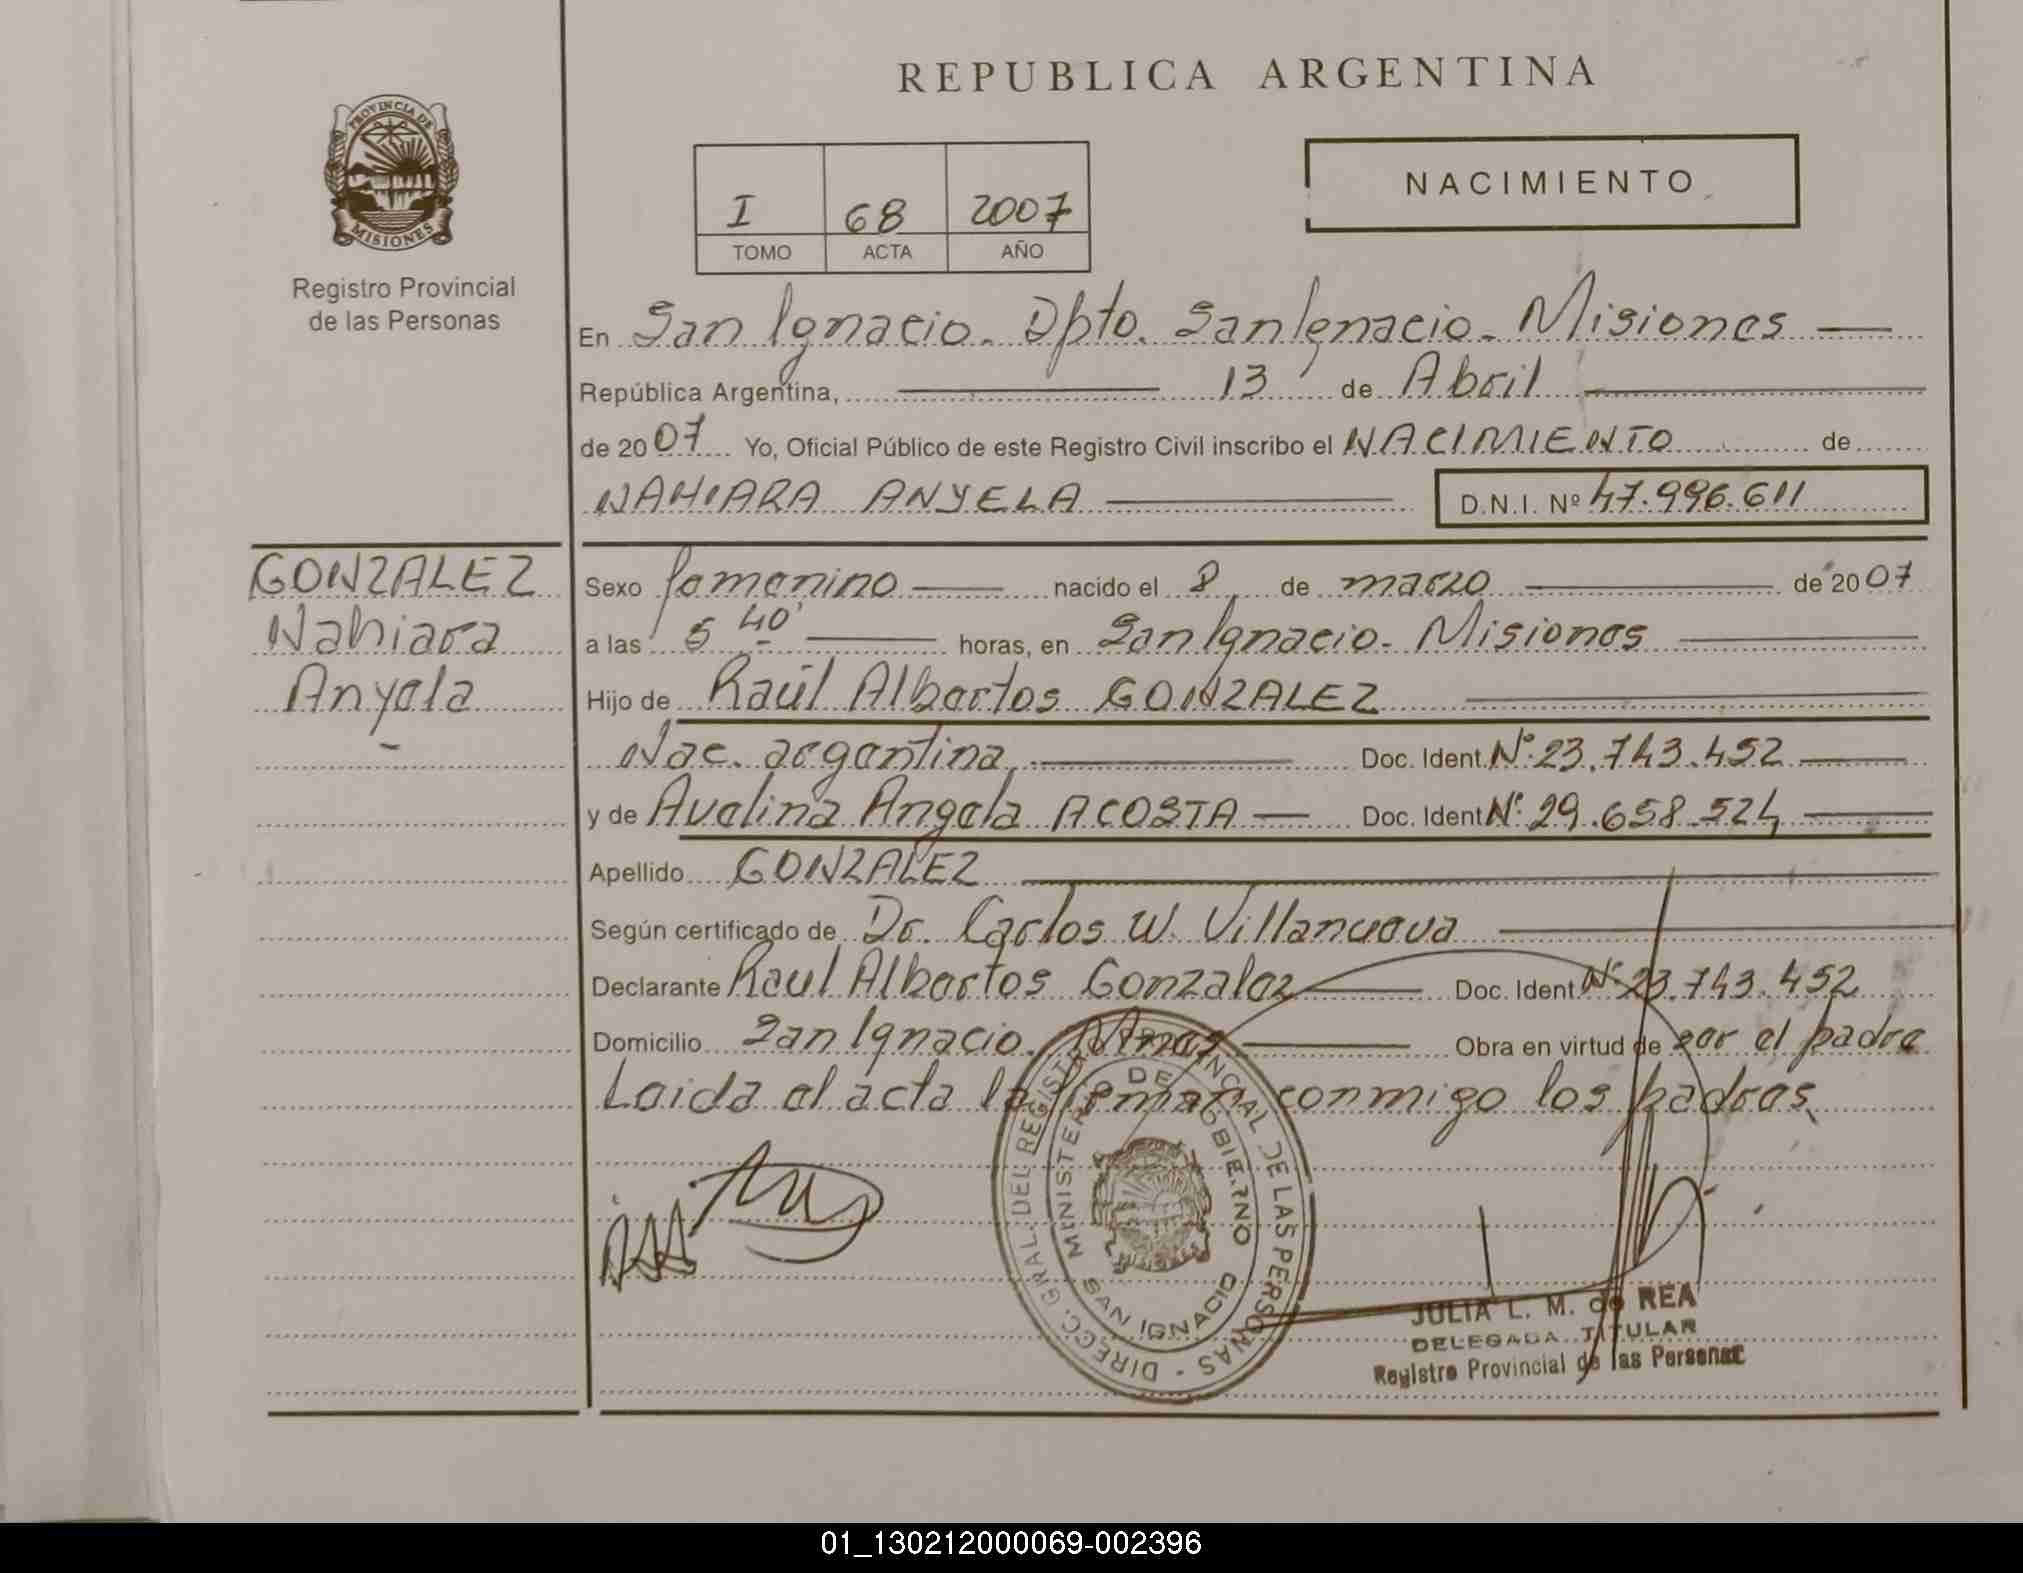 PROVINCIA DE
MISIONES
Registro Provincial
de las Personas
REPUBLICA ARGENTINA
I 68 2007
TOMO ACTA AÑO
NACIMIENTO
En San Ignacio. Dpto. San Ignacio. Misiones
República Argentina, 13 de Abril
de 2007 Yo, Oficial Público de este Registro Civil inscribo el NACIMIENTO de
NAHIARA ANYELA D.N.I. Nº 47.996.611
GONZALEZ
Nahiara
Anyela
Sexo femenino nacido el 8 de marzo de 2007
a las 5 40' horas, en San Ignacio. Misiones
Hijo de Raúl Albertos GONZALEZ
Nac. argentina Doc. Ident. Nº 23.743.452
y de Avelina Angela ACOSTA Doc. Ident. Nº 29.658.524
Apellido GONZALEZ
Según certificado de Dr. Carlos W. Villanueva
Declarante Raul Albertos Gonzalez Doc. Ident. Nº 23.743.452
Domicilio San Ignacio. Mnes Obra en virtud de ser el padre
Leida el acta la firman conmigo los padres
DIRECC. GRAL. DEL REGISTRO PROVINCIAL DE LAS PERSONAS
MINISTERIO DE GOBIERNO
SAN IGNACIO
JULIA L. M. de REA
DELEGADA TITULAR
Registro Provincial de las Personas
01_130212000069-002396